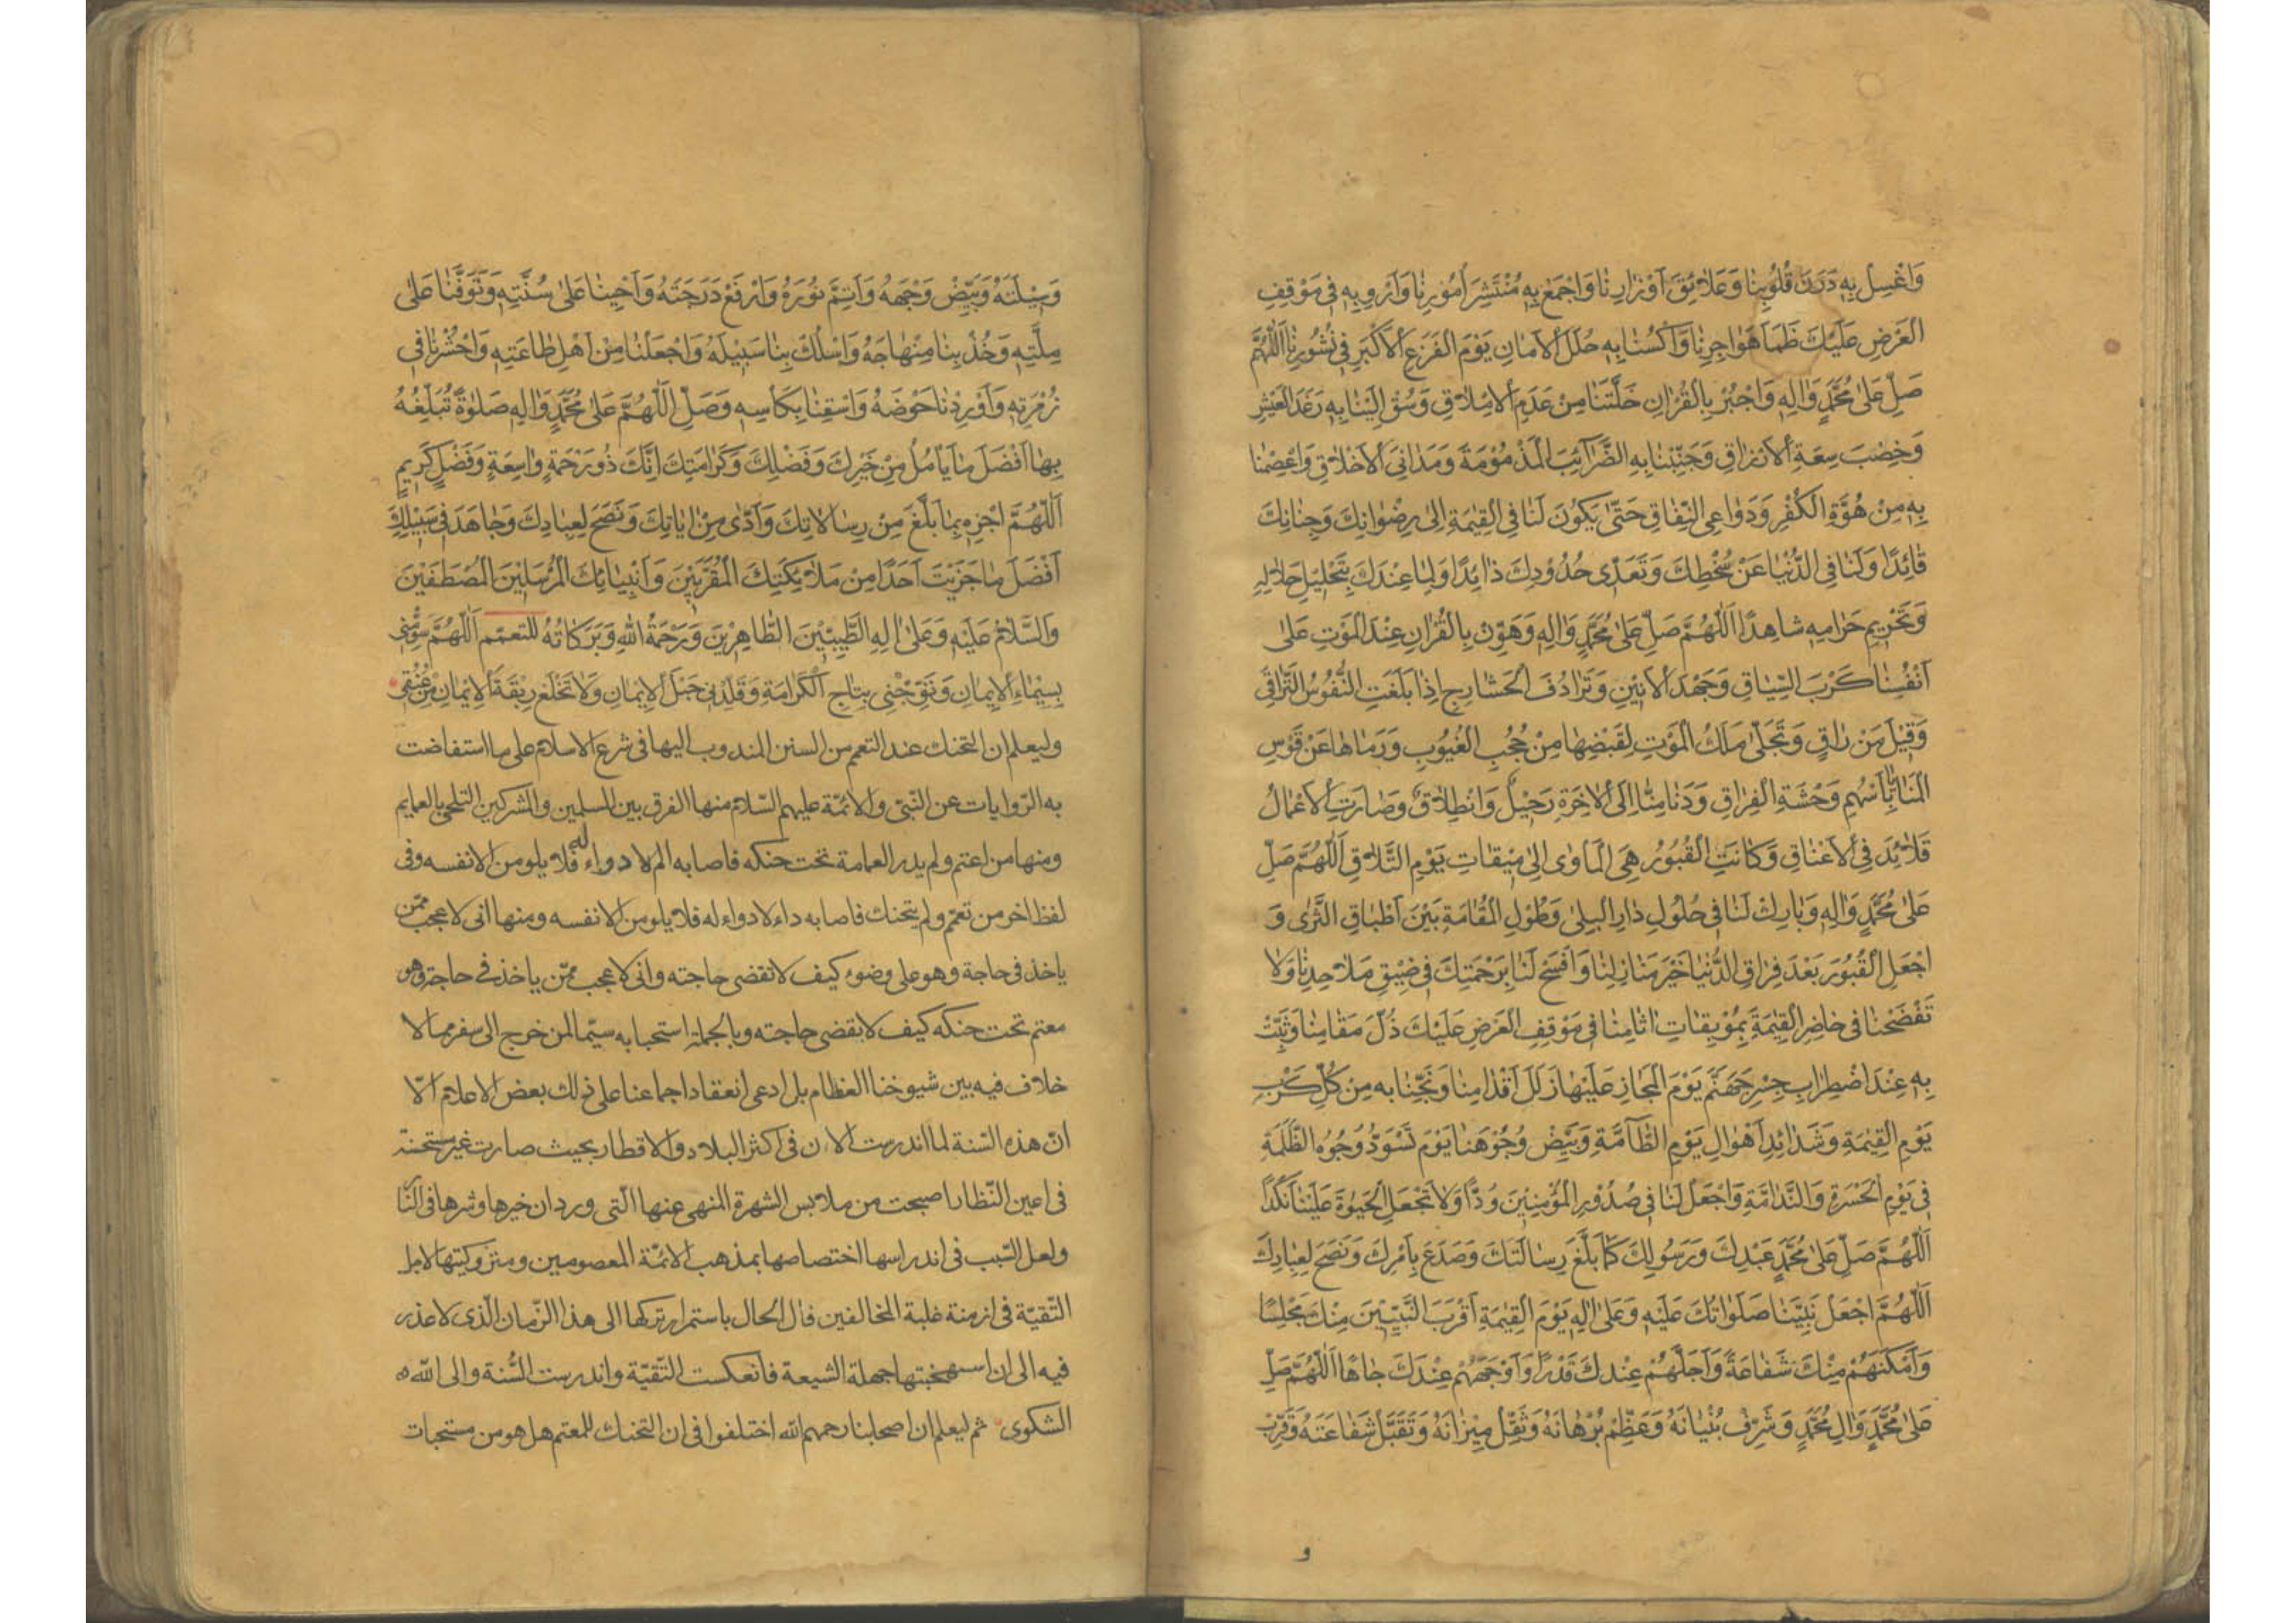 وَاغْسِلْ بِهِ دَرَنَ قُلُوبِنَا وَعَلَائِقَ اَوْزَارِنَا وَاجْمَعْ بِهِ مُنْتَشِرَ اُمُورِنَا وَاَرْوِ بِهِ فِي مَوْقِفِ
الْعَرْضِ عَلَيْكَ ظَمَأَ هَوَاجِرِنَا وَاكْسُنَا بِهِ حُلَلَ الْاَمَانِ يَوْمَ الْفَزَعِ الْاَكْبَرِ فِي نُشُورِنَا اَللّٰهُمَّ
صَلِّ عَلٰى مُحَمَّدٍ وَاٰلِهِ وَاجْبُرْ بِالْقُرْاٰنِ خَلَّتَنَا مِنْ عَدَمِ الْاِمْلَاقِ وَسُقْ اِلَيْنَا بِهِ رَغَدَ الْعَيْشِ
وَخِصْبَ سِعَةِ الْاَرْزَاقِ وَجَنِّبْنَا بِهِ الضَّرَائِبَ الْمَذْمُومَةَ وَمَدَانِيَ الْاَخْلَاقِ وَاعْصِمْنَا
بِهِ مِنْ هُوَّةِ الْكُفْرِ وَدَوَاعِي النِّفَاقِ حَتّٰى يَكُونَ لَنَا فِي الْقِيٰمَةِ اِلٰى رِضْوَانِكَ وَجِنَانِكَ
قَائِدًا وَلَنَا فِي الدُّنْيَا عَنْ سُخْطِكَ وَتَعَدِّي حُدُودِكَ ذَائِدًا وَلِمَا عِنْدَكَ بِتَحْلِيلِ حَلَالِهِ
وَتَحْرِيمِ حَرَامِهِ شَاهِدًا اَللّٰهُمَّ صَلِّ عَلٰى مُحَمَّدٍ وَاٰلِهِ وَهَوِّنْ بِالْقُرْاٰنِ عِنْدَ الْمَوْتِ عَلٰى
اَنْفُسِنَا كَرْبَ السِّيَاقِ وَجَهْدَ الْاَنِينِ وَتَرَادُفَ الْحَشَارِجِ اِذَا بَلَغَتِ النُّفُوسُ التَّرَاقِيَ
وَقِيلَ مَنْ رَاقٍ وَتَجَلّٰى مَلَكُ الْمَوْتِ لِقَبْضِهَا مِنْ حُجُبِ الْغُيُوبِ وَرَمَاهَا عَنْ قَوْسِ
الْمَنَايَا بِاَسْهُمِ وَحْشَةِ الْفِرَاقِ وَدَنَا مِنَّا اِلَى الْاٰخِرَةِ رَحِيلٌ وَانْطِلَاقٌ وَصَارَتِ الْاَعْمَالُ
قَلَائِدَ فِي الْاَعْنَاقِ وَكَانَتِ الْقُبُورُ هِيَ الْمَاْوٰى اِلٰى مِيقَاتِ يَوْمِ التَّلَاقِ اَللّٰهُمَّ صَلِّ
عَلٰى مُحَمَّدٍ وَاٰلِهِ وَبَارِكْ لَنَا فِي حُلُولِ دَارِ الْبِلٰى وَطُولِ الْمُقَامَةِ بَيْنَ اَطْبَاقِ الثَّرٰى وَ
اجْعَلِ الْقُبُورَ بَعْدَ فِرَاقِ الدُّنْيَا خَيْرَ مَنَازِلِنَا وَافْسَحْ لَنَا بِرَحْمَتِكَ فِي ضِيقِ مَلَاحِدِنَا وَلَا
تَفْضَحْنَا فِي حَاضِرِ الْقِيٰمَةِ بِمُوبِقَاتِ اٰثَامِنَا فِي مَوْقِفِ الْعَرْضِ عَلَيْكَ ذُلَّ مَقَامِنَا وَثَبِّتْ
بِهِ عِنْدَ اضْطِرَابِ جِسْرِ جَهَنَّمَ يَوْمَ الْمَجَازِ عَلَيْهَا زَلَلَ اَقْدَامِنَا وَنَجِّنَا بِهِ مِنْ كُلِّ كَرْبِ
يَوْمِ الْقِيٰمَةِ وَشَدَائِدِ اَهْوَالِ يَوْمِ الطَّامَّةِ وَبَيِّضْ وُجُوهَنَا يَوْمَ تَسْوَدُّ وُجُوهُ الظَّلَمَةِ
فِي يَوْمِ الْحَسْرَةِ وَالنَّدَامَةِ وَاجْعَلْ لَنَا فِي صُدُورِ الْمُؤْمِنِينَ وُدًّا وَلَا تَجْعَلِ الْحَيٰوةَ عَلَيْنَا نَكَدًا
اَللّٰهُمَّ صَلِّ عَلٰى مُحَمَّدٍ عَبْدِكَ وَرَسُولِكَ كَمَا بَلَّغَ رِسَالَتَكَ وَصَدَعَ بِاَمْرِكَ وَنَصَحَ لِعِبَادِكَ
اَللّٰهُمَّ اجْعَلْ نَبِيَّنَا صَلَوَاتُكَ عَلَيْهِ وَعَلٰى اٰلِهِ يَوْمَ الْقِيٰمَةِ اَقْرَبَ النَّبِيِّينَ مِنْكَ مَجْلِسًا
وَاَمْكَنَهُمْ مِنْكَ شَفَاعَةً وَاَجَلَّهُمْ عِنْدَكَ قَدْرًا وَاَوْجَهَهُمْ عِنْدَكَ جَاهًا اَللّٰهُمَّ صَلِّ
عَلٰى مُحَمَّدٍ وَاٰلِ مُحَمَّدٍ وَشَرِّفْ بُنْيَانَهُ وَعَظِّمْ بُرْهَانَهُ وَثَقِّلْ مِيزَانَهُ وَتَقَبَّلْ شَفَاعَتَهُ وَقَرِّبْ
و
وَسِيلَتَهُ وَبَيِّضْ وَجْهَهُ وَاَتِمَّ نُورَهُ وَارْفَعْ دَرَجَتَهُ وَاَحْيِنَا عَلٰى سُنَّتِهِ وَتَوَفَّنَا عَلٰى
مِلَّتِهِ وَخُذْ بِنَا مِنْهَاجَهُ وَاسْلُكْ بِنَا سَبِيلَهُ وَاجْعَلْنَا مِنْ اَهْلِ طَاعَتِهِ وَاحْشُرْنَا فِي
زُمْرَتِهِ وَاَوْرِدْنَا حَوْضَهُ وَاسْقِنَا بِكَاْسِهِ وَصَلِّ اللّٰهُمَّ عَلٰى مُحَمَّدٍ وَاٰلِهِ صَلٰوةً تُبَلِّغُهُ
بِهَا اَفْضَلَ مَا يَاْمُلُ مِنْ خَيْرِكَ وَفَضْلِكَ وَكَرَامَتِكَ اِنَّكَ ذُو رَحْمَةٍ وَاسِعَةٍ وَفَضْلٍ كَرِيمٍ
اَللّٰهُمَّ اجْزِهِ بِمَا بَلَّغَ مِنْ رِسَالَاتِكَ وَاَدّٰى مِنْ اٰيَاتِكَ وَنَصَحَ لِعِبَادِكَ وَجَاهَدَ فِي سَبِيلِكَ
اَفْضَلَ مَا جَزَيْتَ اَحَدًا مِنْ مَلَائِكَتِكَ الْمُقَرَّبِينَ وَاَنْبِيَائِكَ الْمُرْسَلِينَ الْمُصْطَفَيْنَ
وَالسَّلَامُ عَلَيْهِ وَعَلٰى اٰلِهِ الطَّيِّبِينَ الطَّاهِرِينَ وَرَحْمَةُ اللهِ وَبَرَكَاتُهُ للتعمّم اَللّٰهُمَّ سَوِّمْنِي
بِسِيمَاءِ الْاِيمَانِ وَتَوِّجْنِي بِتَاجِ الْكَرَامَةِ وَقَلِّدْنِي حَبْلَ الْاِيمَانِ وَلَا تَخْلَعْ رِبْقَةَ الْاِيمَانِ مِنْ عُنُقِي
وليعلم ان التحنك عند التعمم من السنن المندوب اليها في شرع الاسلام على ما استفاضت
به الرّوايات عن النّبيّ والائمّة عليهم السّلام منها الفرق بين المسلمين والمشركين التلحي بالعمايم
ومنها من اعتم ولم يدر العمامة تحت حنكه فاصابه الم لا دواء له فلا يلومن الا نفسه وفي
لفظ اخر من تعمّم ولم يتحنك فاصابه داء لا دواء له فلا يلومن الا نفسه ومنها انى لاعجب ممّن
ياخذ في حاجة وهو على وضوء كيف لا تقضى حاجته وانى لاعجب ممّن ياخذ في حاجة وهو
معتم تحت حنكه كيف لا تقضى حاجته وبالجملة استحبابه سيّما لمن خرج الى سفر مما لا
خلاف فيه بين شيوخنا العظام بل ادعى انعقاد اجماعنا على ذلك بعض الاعلام الّا
انّ هذه السّنة لما اندرست الان في اكثر البلاد والاقطار بحيث صارت غير مستحسنة
في اعين النّظار اصبحت من ملابس الشهرة المنهى عنها الّتى ورد ان خيرها وشرها في النّار
ولعل السّبب في اندراسها اختصاصها بمذهب الائمّة المعصومين ومتروكيتها لاجل
التّقيّة في ازمنة غلبة المخالفين فال الحال باستمرار تركها الى هذا الزّمان الّذى لا عذر
فيه الى ان استهجنتها جهلة الشيعة فانعكست التّقيّة واندرست السُّنة والى الله
الشكوى ثم ليعلم ان اصحابنا رحمهم الله اختلفوا في ان التحنك للمعتم هل هو من مستحبات